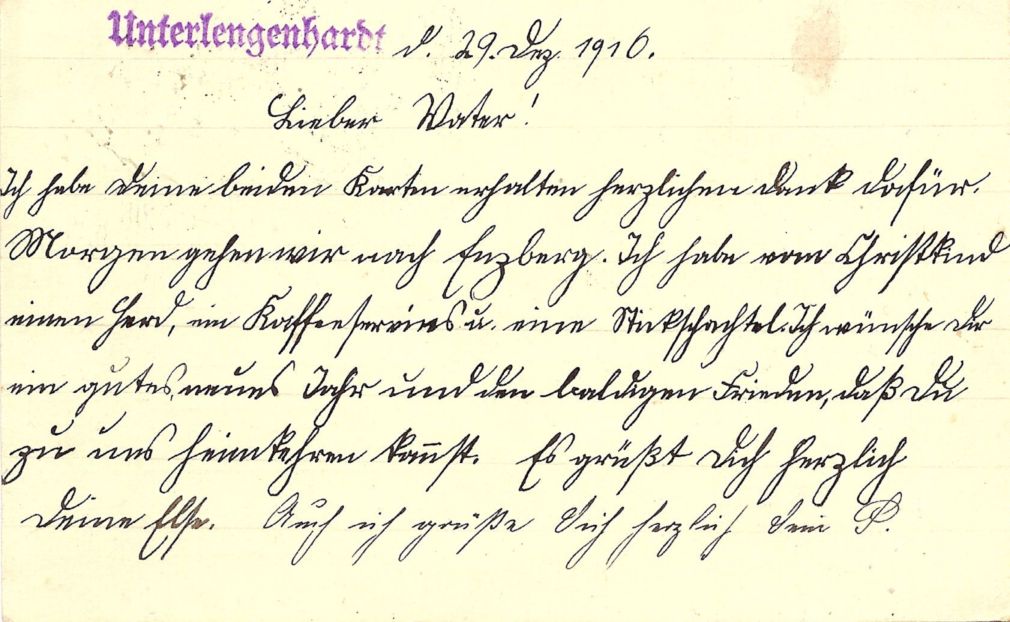 Unterlengenhardt d. 29. Dez. 1916.
Lieber Vater!
Ich habe deine beiden Karten erhalten herzlichen dank dafür.
Morgen gehen wir nach Enzberg. Ich habe vom Christkind
einen Herd, ein Kaffeeservies u. eine Stickschachtel. Ich wünsche Dir
ein gutes, neues Jahr und den baldigen Frieden, daß Du
zu uns heimkehren kannst. Es grüßt Dich herzlich
deine Else. Auch ich grüße Dich herzlich Dein P.